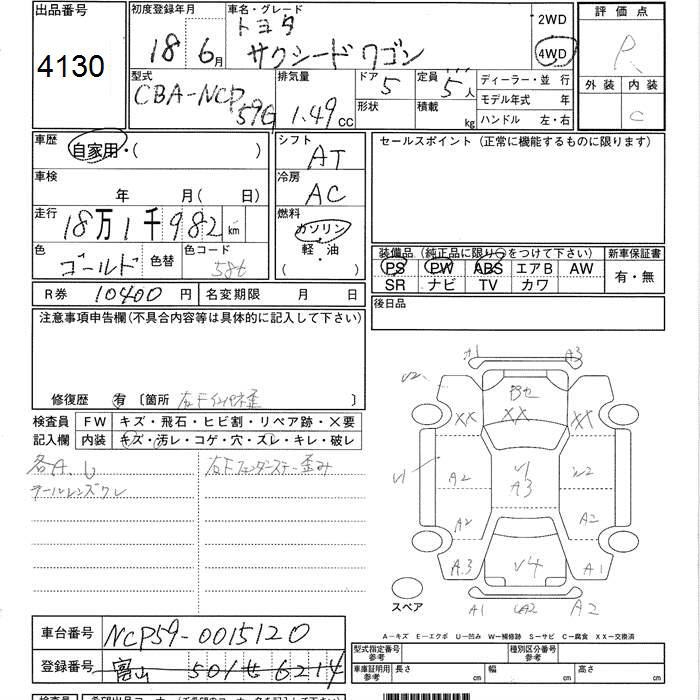 出品番号 初度登録年月 車名・グレード 2WD 評価点
4130 18年6月 トヨタ サクシードワゴン 4WD R
外装 内装
C
型式 排気量 ドア 定員 ディーラー・並 行
CBA-NCP59G 1.49 CC 5 5人 モデル年式 年
形状 積載 kg ハンドル 左・右
車歴 自家用・( ) シフト AT セールスポイント (正常に機能するものに限ります)
車検 年 月( 日) 冷房 AC
走行 18万1千982 km 燃料 ガソリン 軽・油 ( ・ )
装備品 (純正品に限り○をつけて下さい) 新車保証書
色 ゴールド 色替 色コード 586
PS PW ABS エアB AW 有・無
SR ナビ TV カワ
R券 10400円 名変期限 月 日 後日品
注意事項申告欄(不具合内容等は具体的に記入して下さい)
修復歴 有 〔箇所 右Fインパネ歪 〕
検査員 FW キズ・飛石・ヒビ割・リペア跡・×要
記入欄 内装 キズ・汚レ・コゲ・穴・ズレ・キレ・破レ
各A.U 右Fフェンダーステー歪み
テールレンズワレ
A1 A3
XX XX XX
V1 A2 V1 A3 W2
A2 A2
A3 V4 A1
スペア A1 A2
A−キズ E−エクボ U−凹み W−補修跡 S−サビ C−腐食 XX−交換済
車台番号 NCP59-0015120 型式指定番号 参考 種別区分番号 参考
登録番号 富山 501せ6214 車庫証明用 参考 長さ cm 幅 cm 高さ cm
検査員